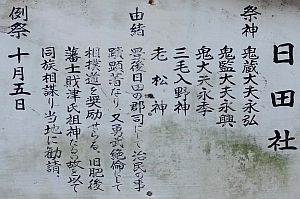 日田社
祭神
鬼蔵大夫永弘
鬼監大夫永興
鬼大夫永季
三毛入野神
老松神
由緒
豊後日田の郡司にして治民の事
蹟顕著なり、又勇武絶倫にして
相撲道を奨励せらる、旧肥後
藩士財津氏祖神たるの故を以て
同族相謀り当地に勧請
例祭
十月五日